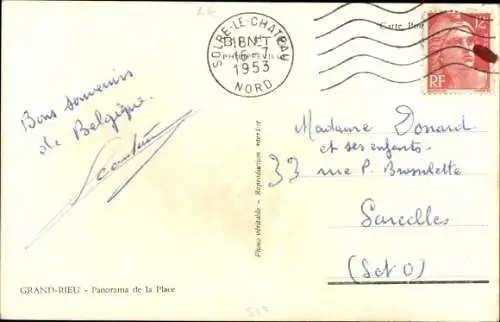 Carte Pos
SOLRE-LE-CHATEAU
16-7
1953
NORD
RF
Bons souvenirs
de Belgique.
Madame Donard
et ses enfants.
33 rue P. Brossolette
Sarcelles
(S et O)
Photo véritable - Reproduction interdite
GRAND-RIEU - Panorama de la Place